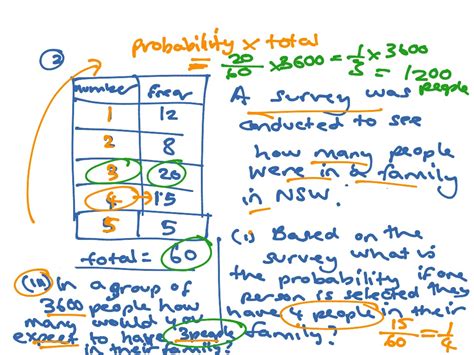 ②
probability x total
= 20/60 x 3600 = 1/3 x 3600
= 1200 people
number Freq
1 12
2 8
3 20
4 → 15
5 5
total = 60
A survey was
conducted to see
how many people
were in a family
in NSW.
(i) Based on the
survey what is
the probability if one
person is selected they
have 4 people in their
family?
15/60 = 1/4
(ii) in
a group of
3600 people how
many would you
expect to have 3 people
in their family?